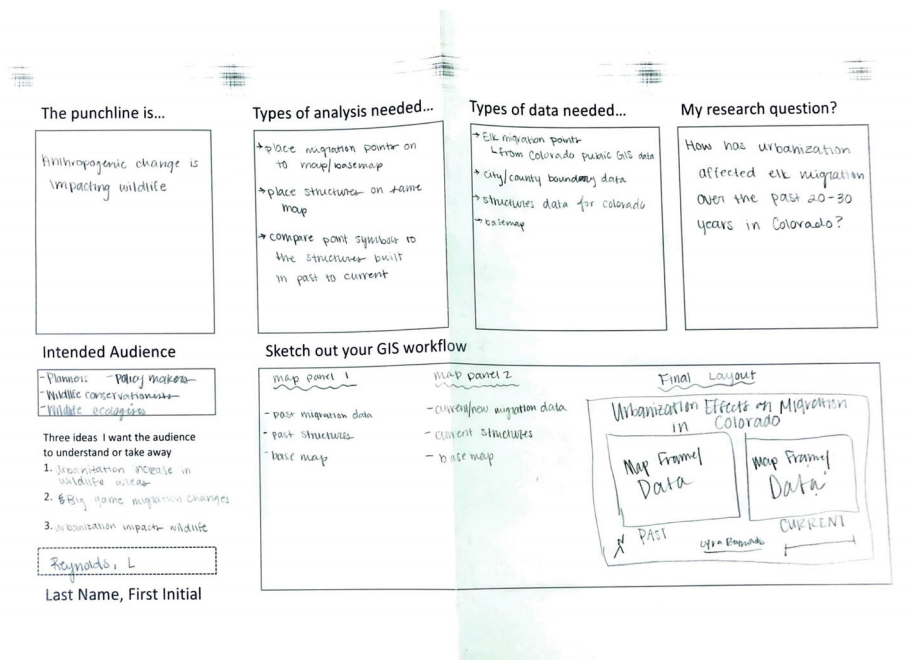 The punchline is...
Anthropogenic change is
impacting wildlife
Types of analysis needed...
→ place migration points on
to map/basemap
→ place structures on same
map
→ compare point symbols to
the structures built
in past to current
Types of data needed...
→ Elk migration points
from Colorado public GIS data
→ city/county boundary data
→ structures data for colorado
→ basemap
My research question?
How has urbanization
affected elk migration
over the past 20-30
years in Colorado?
Intended Audience
- Planners - Policy makers
- Wildlife conservationists
- Wildlife ecologists
Three ideas I want the audience
to understand or take away
1. Urbanization increase in
wildlife areas
2. Big game migration changes
3. Urbanization impacts wildlife
Reynolds, L
Last Name, First Initial
Sketch out your GIS workflow
map panel 1
- past migration data
- past structures
- base map
map panel 2
- current/new migration data
- current structures
- base map
Final Layout
Urbanization Effects on Migration
in Colorado
Map Frame/
Data
Map Frame/
Data
PAST
CURRENT
N